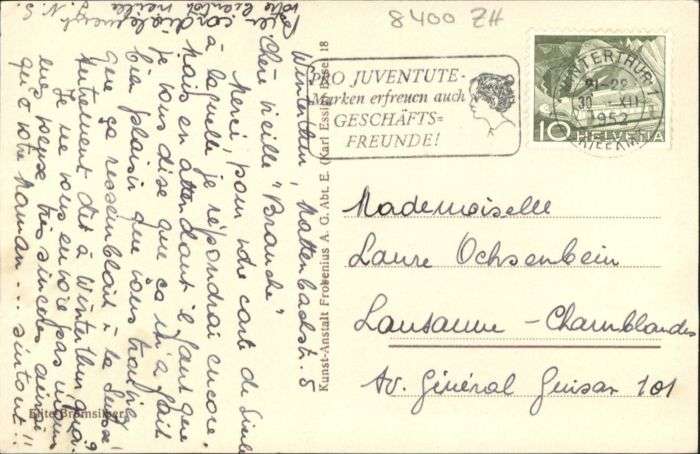 8400 ZH
PRO JUVENTUTE-
Marken erfreuen auch
GESCHÄFTS-
FREUNDE!
WINTERTHUR 1
21-22
30. XII
1952
10 HELVETIA
Mademoiselle
Laure Ochsenbein
Lausanne - Chamblandes
Av. Général Guisan 101
Kunst-Anstalt Frobenius A. G. Abt. E. (Karl Essig) Basel 18
Elite Bromsilber
Winterthur, Mattenbachstr. 5
Chère vieille "Branche"
Merci, pour votre carte de
à laquelle je répondrai encore.
Mais en attendant il faut que
je vous dise que ça m'a fait
bien plaisir que vous trouviez
que ça ressemblait à la
Autrement dit à Winterthur
Je ne vous envoie pas
mes voeux très sincères ainsi
qu'à votre Maman ... surtout!!
cordialement
votre